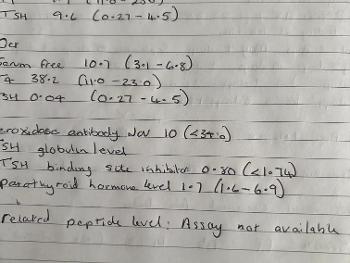 TSH 9.6 (0.27 - 4.5)
Oct
Serum free 10.7 (3.1 - 6.8)
T4 38.2 (11.0 - 23.0)
TSH 0.04 (0.27 - 4.5)
peroxidase antibody Nov 10 (<34.0)
TSH globulin level
TSH binding site inhibitor 0.80 (<1.74)
Parathyroid hormone level 1.7 (1.6 - 6.9)
related peptide level: Assay not available